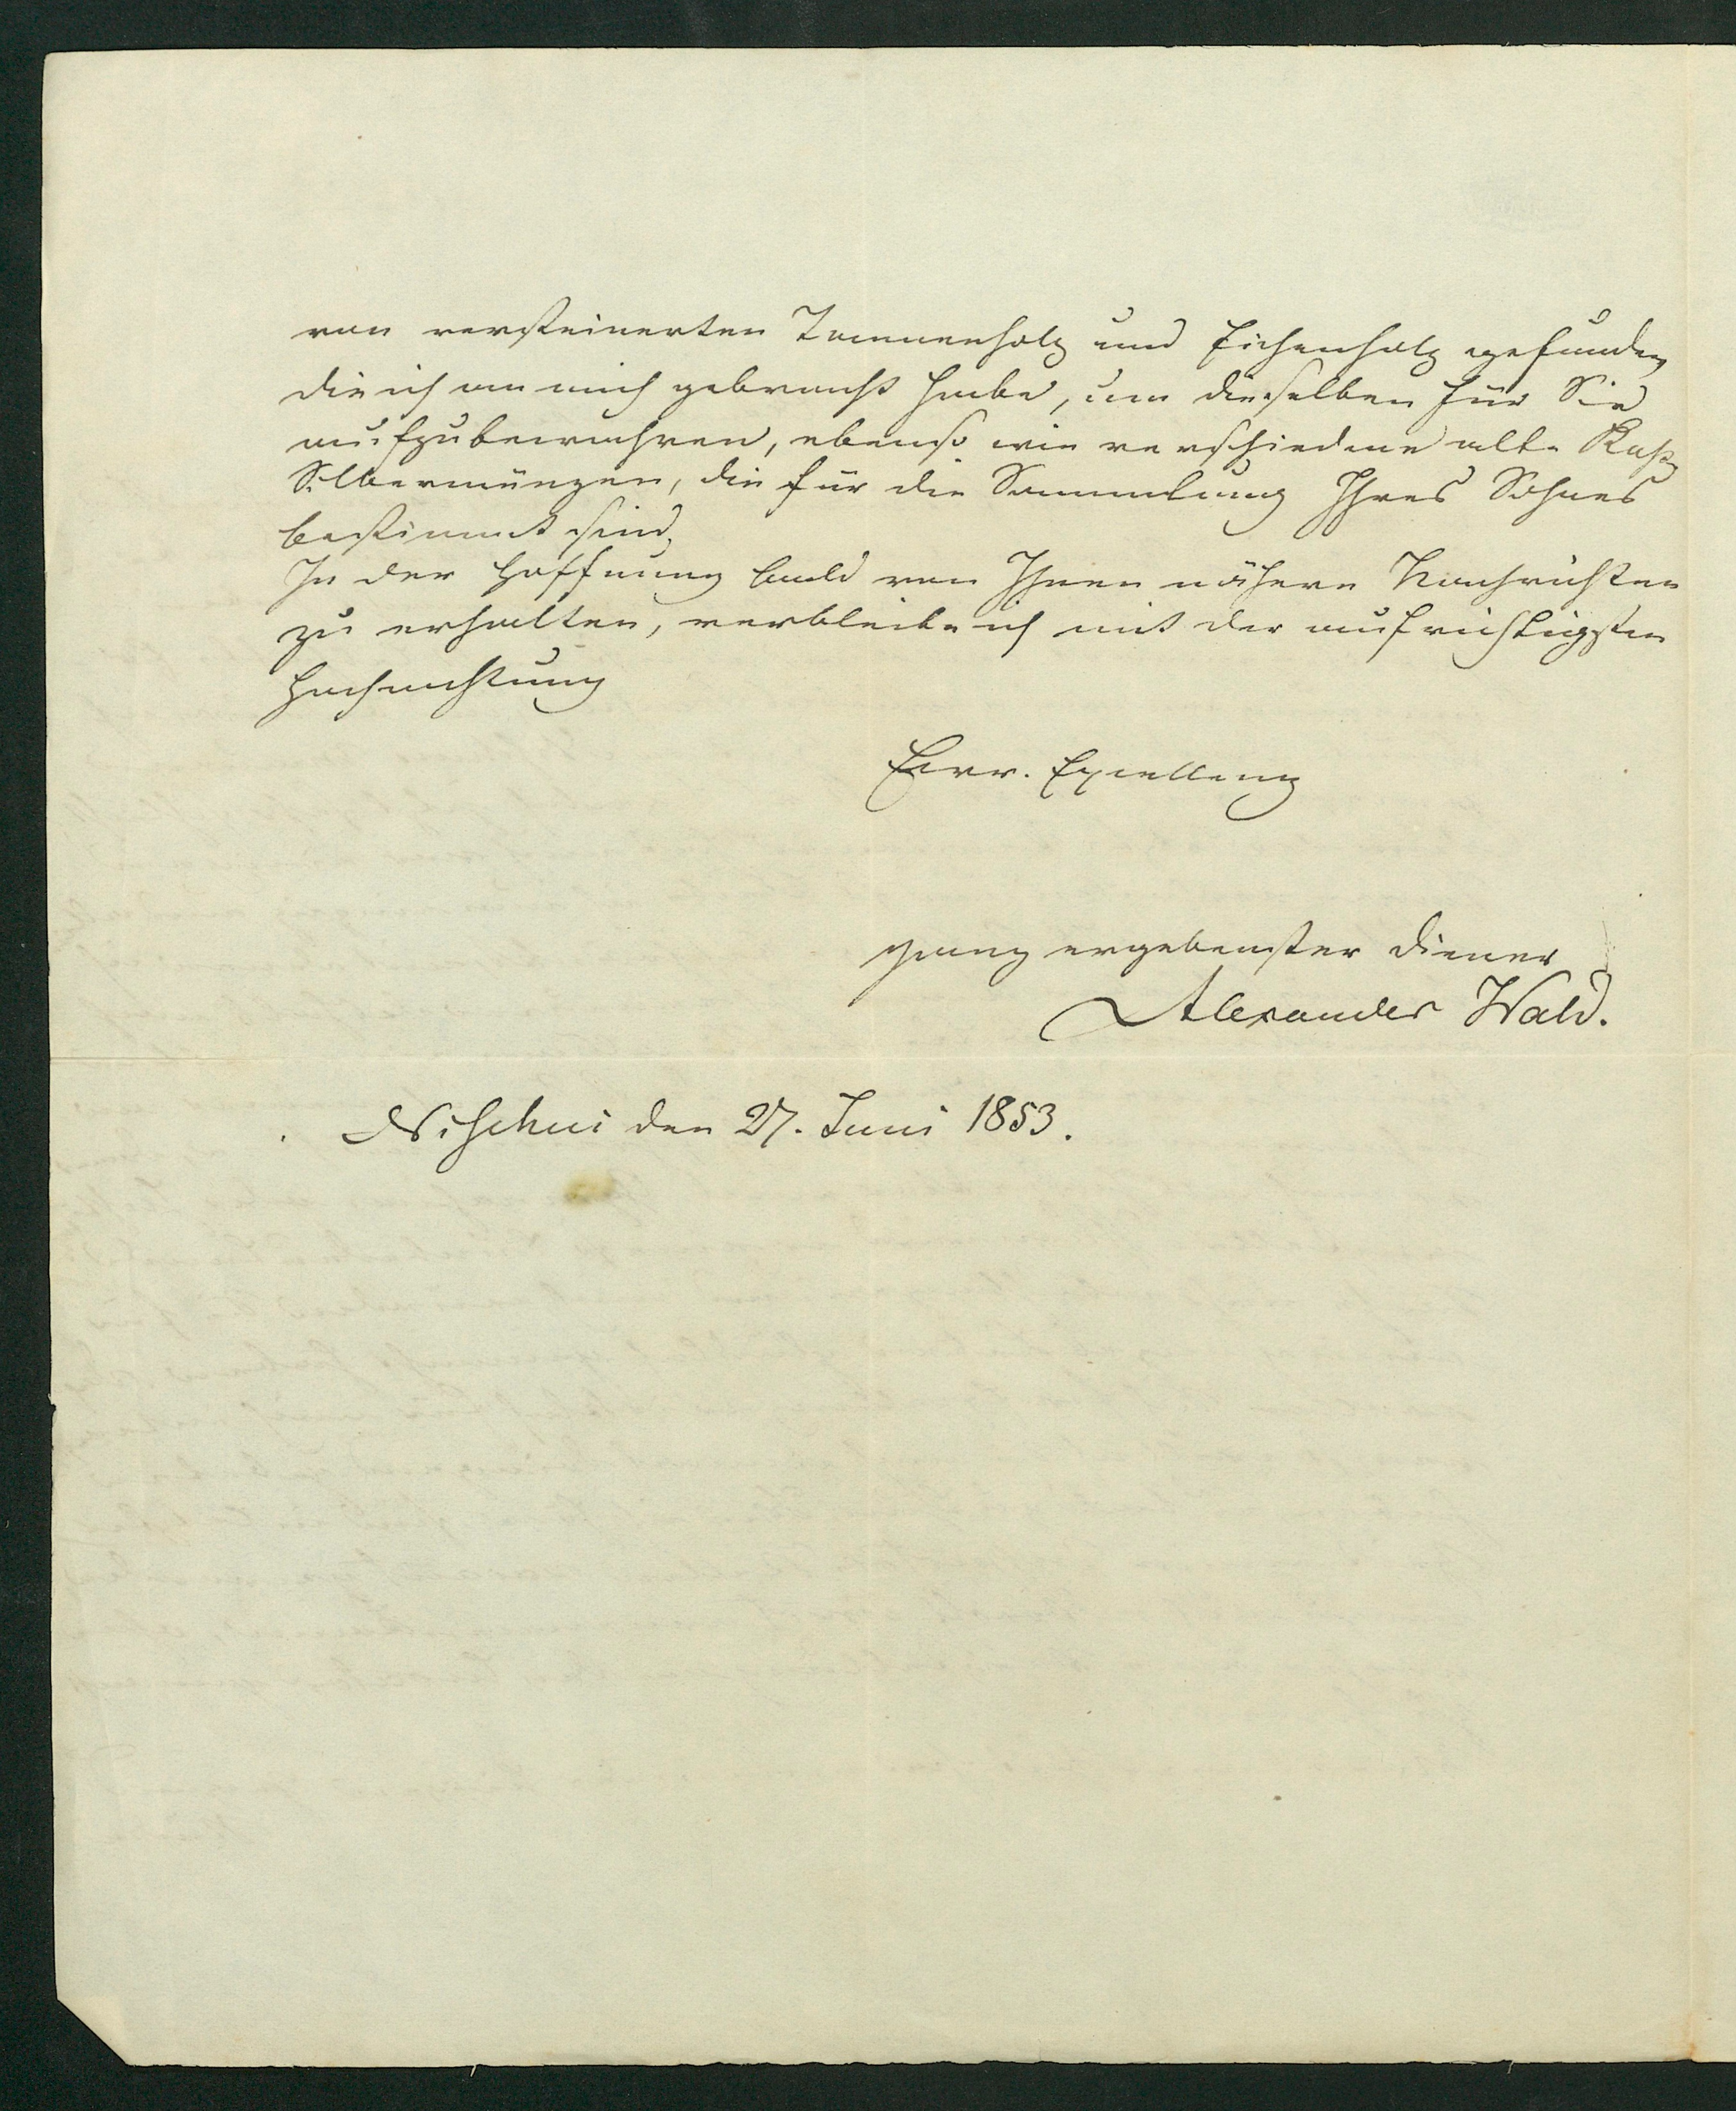 von versteinerten Tannenholz und Eichenholz gefunden
die ich an mich gebracht habe, um dieselben für Sie
aufzubewahren, ebenso wie verschiedene alte
Silbermünzen, die für die Sammlung Ihres Sohnes
bestimmt sind,
In der Hoffnung bald von Ihnen nähere Nachrichten
zu erhalten, verbleibe ich mit der aufrichtigsten
Hochachtung
Eurer. Excellenz
ganz ergebenster Diener
Alexander Wald.
den 27. Juni 1853.